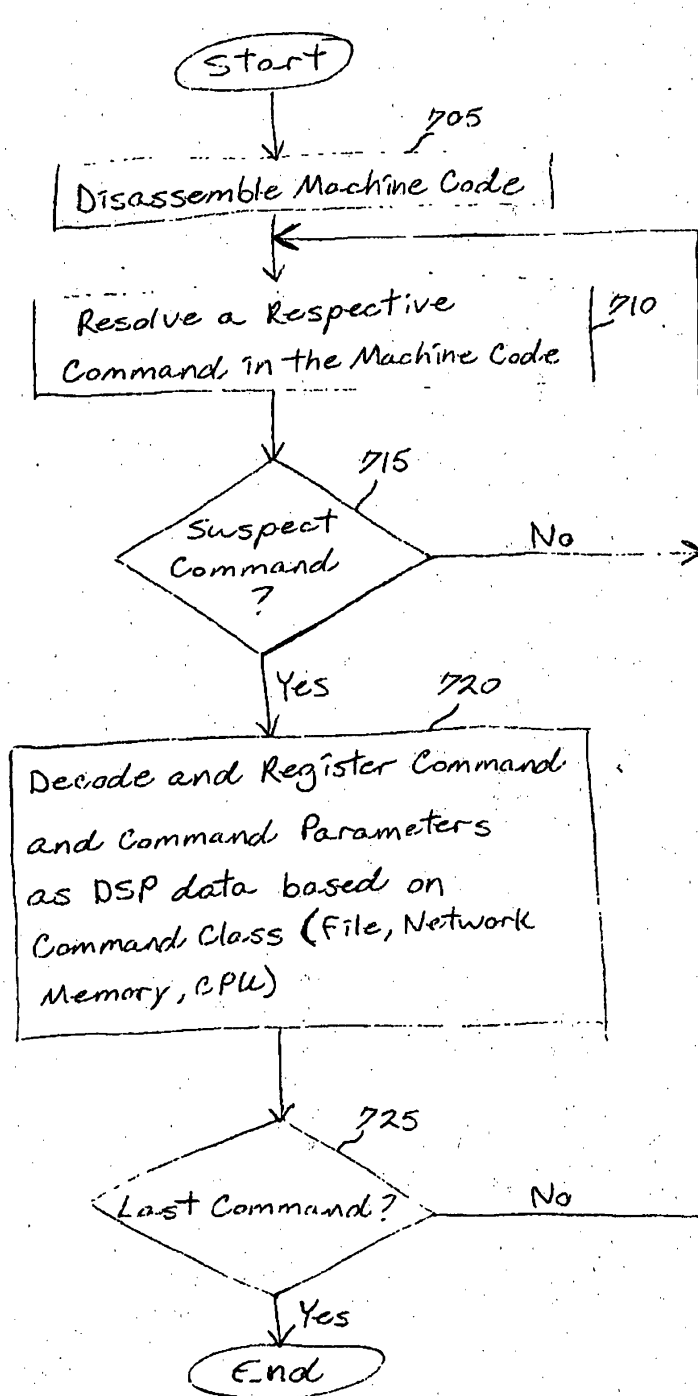 Start
705
Disassemble Machine Code
Resolve a Respective
710
Command in the Machine Code
715
Suspect
Command
?
No
Yes
720
Decode and Register Command
and Command Parameters
as DSP data based on
Command Class (File, Network
Memory, CPU)
725
Last Command?
No
Yes
End